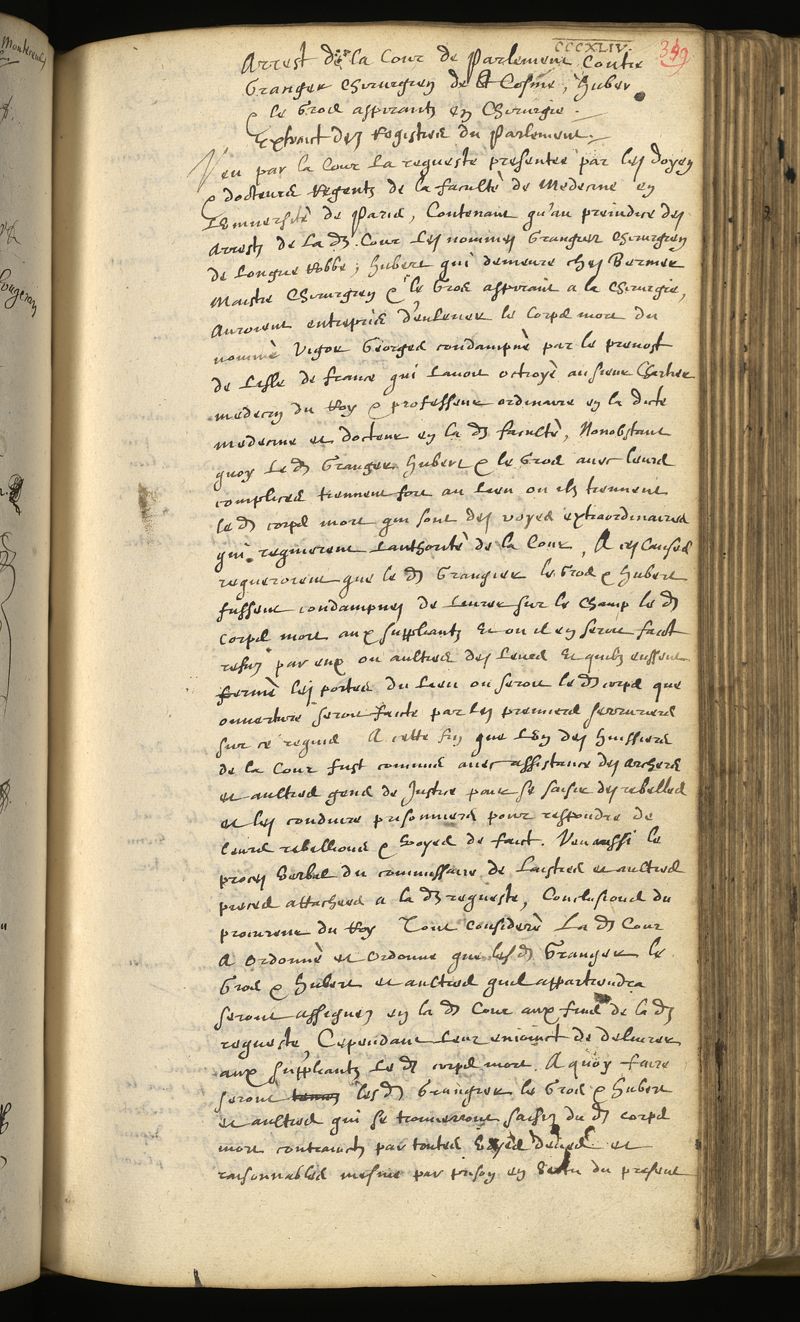 CCCXLIV.
349
Arrest de la Cour de Parlement Contre
Granger Chirurgien de St Cosme, Huber
& le Gros aspirants en Chirurgie.
Extraict des Registres du Parlement.
Veu par la Cour La requeste presentée par les doyen
& docteurs Regents de la faculté de Medecine en
L'Université de Paris, Contenant qu'au preiudice des
Arrests de La d. Cour Les nommés Grangier Chirurgien
de Longue Robbe, Hubert qui demeure chez Bermer
Maistre Chirurgien & le Gros aspirant a la Chirurgie,
Auroient entrepris d'enlever le corps mort du
nommé Vigor Georges condampné par le prevost
de L'isle de france qui L'avoit octroyé au sieur Chartier
medecin du Roy & professeur ordinaire en la dicte
medecine et docteur en la d. faculté, Nonobstant
quoy Le d. Granger Hubert & le Gros avec leurs
complices tiennent fort au Lieu ou ils tiennent
le d. corps mort qui sont des voyes extraordinaires
qui requierent L'authorité de la Cour, A ces Causes
requeroient que le d. Grangier le Gros & Hubert
fussent condampnes de Livrer sur le champ le d.
corps mort aux suppliants Et ou il en seroit faict
refus par eux ou aultres des Leurs Et quils eussent
fermé les portes du Lieu ou seroit le d. corps que
ouverture seroit faicte par les premiers serruriers
sur ce requis A cette fin que L'un des huissiers
de la Cour fust commis avec assistance des archers
et aultres gens de Justice pour se saisir des rebelles
et les conduire prisonniers pour respondre de
leurs rebellions & voyes de faict. Veu aussi le
proces verbal du commissaire de Laistres et aultres
pieces attachees a la d. requeste, Conclusions du
procureur du Roy Tout consideré La d. Cour
A Ordonné et Ordonne que les d. Granger le
Gros & Hubert et aultres quil appartiendra
seront assignez en la d. Cour aux fins de la d.
requeste, Cependant Leur enioinct de delivrer
aux suppliants Le d. corps mort. A quoy faire
seront les d. Grangier le Gros & Hubert
et aultres qui se trouveront saisis du d. corps
mort contraincts par toutes voyes deues et
raisonnables mesme par prison en vertu du present